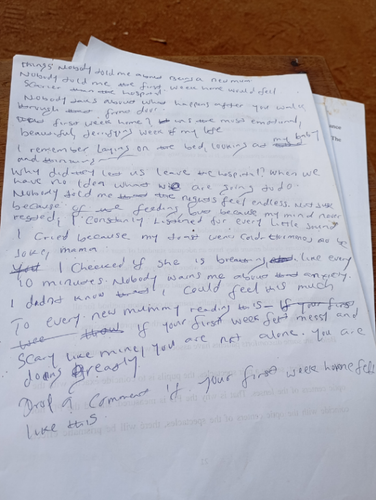 Things Nobody told me about Being a new mum
Nobody told me the first week home would feel
Scarier than the hospital.
Nobody about what happens after you walk
through front door.
first week home? It was the most emotional,
beautiful, terrifying week of my life
I remember laying on the bed, looking at my baby
and thinking
Why did they let us leave the hospital? When we
have no idea what we are going to do.
Nobody told me the nights feel endless. Not just
because of the feeding but because my mind never
rested, I constantly listened for every little sound
I cried because my
joke, mama.
I checked if she is breathing like every
10 minutes. Nobody warns me about anxiety.
I didn't know I could feel this much
To every new mummy reading this – If your first
week If your first week felt messy and
Scary like mine, you are not alone. You are
doing greatly
Drop a comment if your first week home felt
like this.